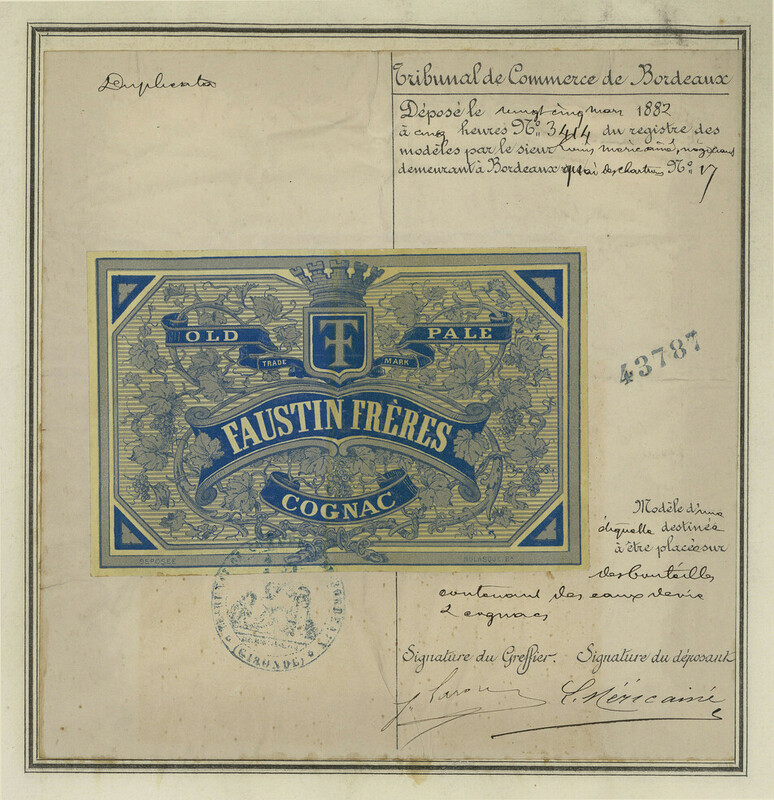 Duplicata
Tribunal de Commerce de Bordeaux
Déposé le vingt cinq mars 1882
à cinq heures No. 3414 du registre des
modèles par le sieur Louis Meric ainé,
demeurant à Bordeaux quai des chartrons No. 17
OLD PALE
F
TRADE MARK
FAUSTIN FRÈRES
COGNAC
DEPOSÉE
43787
Modèle d'une
étiquette destinée
à être placée sur
des bouteilles
contenant des eaux de vie
cognacs
(GIRONDE)
Signature du Greffier. Signature du déposant
L. Méric ainé